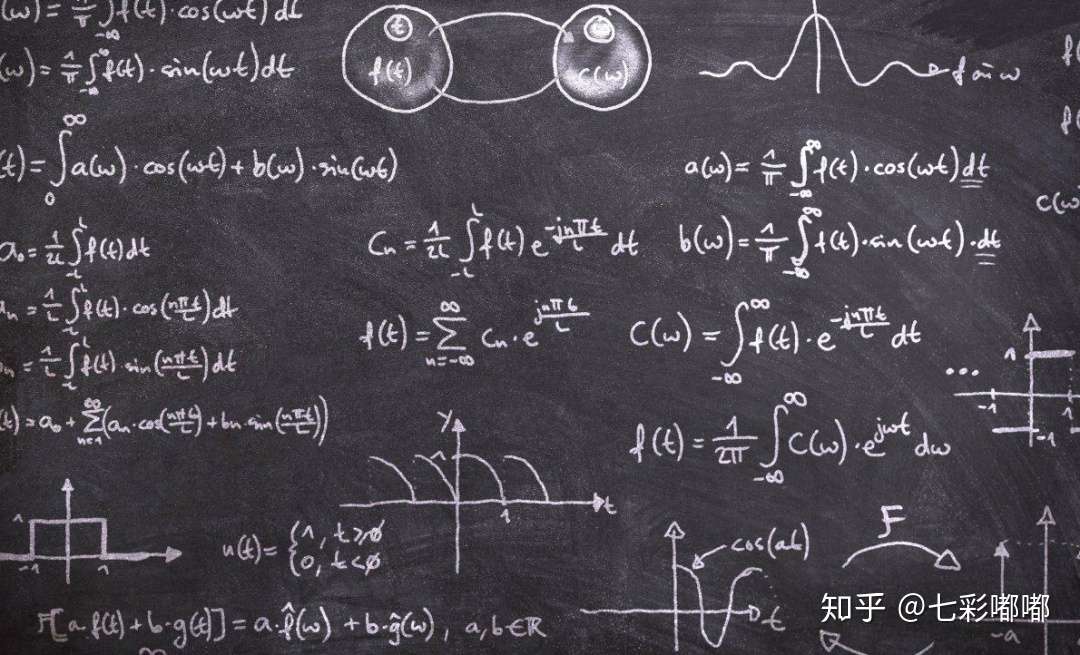 (ω) = 1/π ∫_{-∞} f(t)·cos(ωt) dt
(ω) = 1/π ∫_{-∞}^{∞} f(t)·sin(ωt) dt
t
f(t)
c(ω)
(t) = ∫_{0}^{∞} a(ω)·cos(ωt) + b(ω)·sin(ωt)
a(ω) = 1/π ∫_{-∞}^{∞} f(t)·cos(ωt) dt
b(ω) = 1/π ∫_{-∞}^{∞} f(t)·sin(ωt)·dt
C(ω
a₀ = 1/2L ∫_{-L}^{L} f(t) dt
Cn = 1/2L ∫_{-L}^{L} f(t) e^{-jnπt/L} dt
n = 1/L ∫_{-L}^{L} f(t)·cos(nπt/L) dt
n = 1/L ∫_{-L}^{L} f(t)·sin(nπt/L) dt
f(t) = ∑_{n=-∞}^{∞} Cn·e^{jnπt/L}
C(ω) = ∫_{-∞}^{∞} f(t)·e^{-jnπt/L} dt
(t) = a₀ + ∑_{n=1}^{∞} (an·cos(nπt/L) + bn·sin(nπt/L))
f(t) = 1/2π ∫_{-∞}^{∞} C(ω)·e^{jωt} dω
1
...
-1
-1
y
1
1
t
1
-1
1
u(t) = {1, t≥0
0, t<0
cos(at)
t
F
-a
F[a·f(t) + b·g(t)] = a·f̂(ω) + b·ĝ(ω), a,b∈ℝ
知乎 @七彩嘟嘟